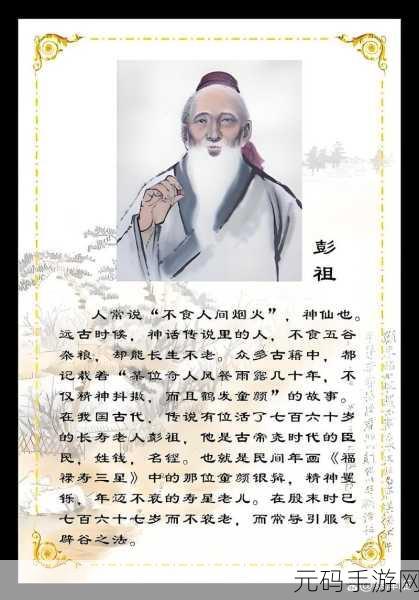 彭祖
人常说“不食人间烟火”，神仙也。
远古时候，神话传说里的人，不食五谷
杂粮，却能长生不老。众多古籍中，都
记载着“某位奇人风餐雨露几十年，不
仅精神抖擞，而且鹤发童颜”的故事。
在我国古代，传说有位活了七百六十岁
的长寿老人彭祖，他是古帝尧时代的臣
民，姓钱，名铿。也就是民间年画《福
禄寿三星》中的那位童颜银髯，精神矍
铄，年迈不衰的寿星老儿。在殷末时已
七百六十七岁而不衰老，而常导引服气
辟谷之法。
元码手游网